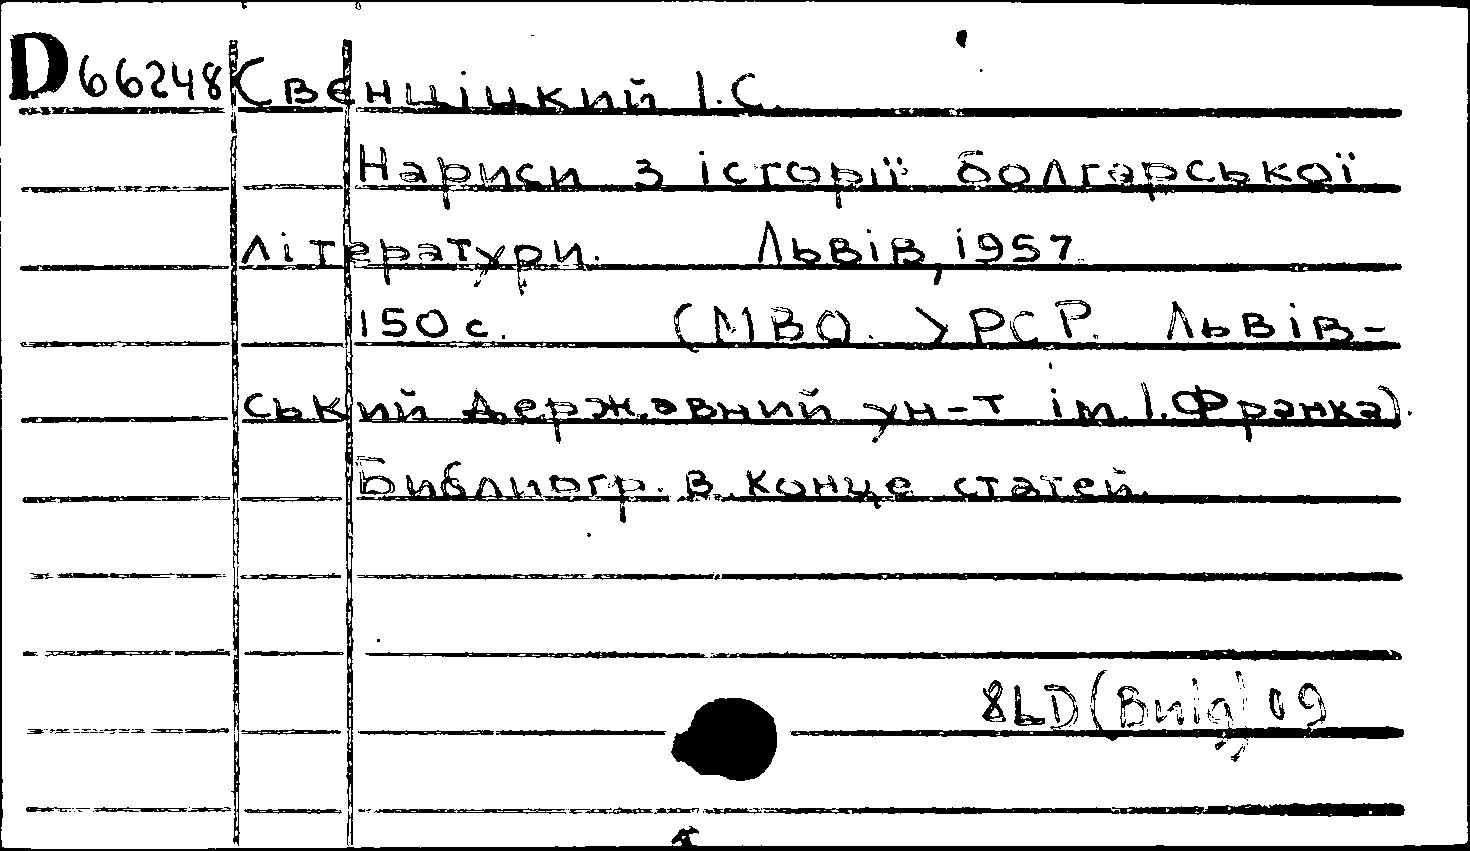 D66248 Свєнціцкий І.С.
Нариси з історії болгарської
літератури. Львів, 1957.
150 с. (МВО. УРСР. Львів-
ський державний ун-т ім. І. Франка).
Библиогр. в конце статей.
8LD(Bulg)09